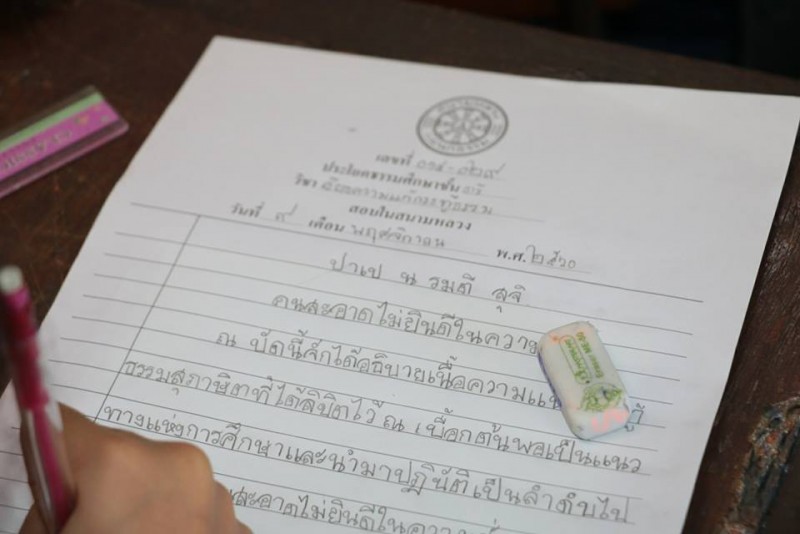 เลขที่ ๐๑๔-๐๒๙
ประโยคธรรมศึกษาชั้น ตรี
วิชา เรียงความแก้กระทู้ธรรม
สอบในสนามหลวง
วันที่ ๙ เดือน พฤศจิกายน พ.ศ. ๒๕๖๐
ปาเป น รมตี สุจิ
คนสะอาดไม่ยินดีในความ
ณ บัดนี้จักได้อธิบายเนื้อความแห่
ธรรมสุภาษิตที่ได้ลิขิตไว้ ณ เบื้องต้นพอเป็นแนว
ทางแห่งการศึกษาและนำมาปฏิบัติเป็นลำดับไป
สะอาดไม่ยินดีในความ